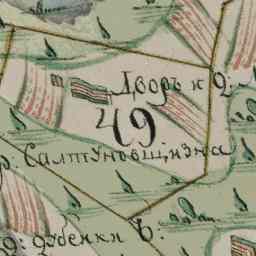 Дворъ к 9:
49
р: Салтуновщизна
9: дубенки Ъ: